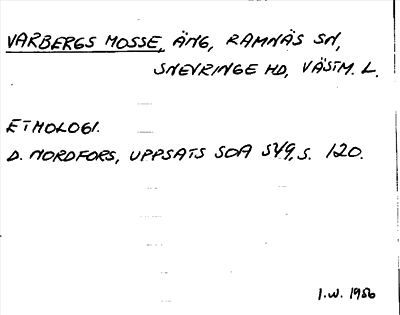 VARBERGS MOSSE, ÄNG, RAMNÄS SN,
SNEVRINGE HD, VÄSTM. L.
ETMOLOGI.
D. NORDFORS, UPPSATS SOA 5:1/9, S. 120.
I.W. 1956